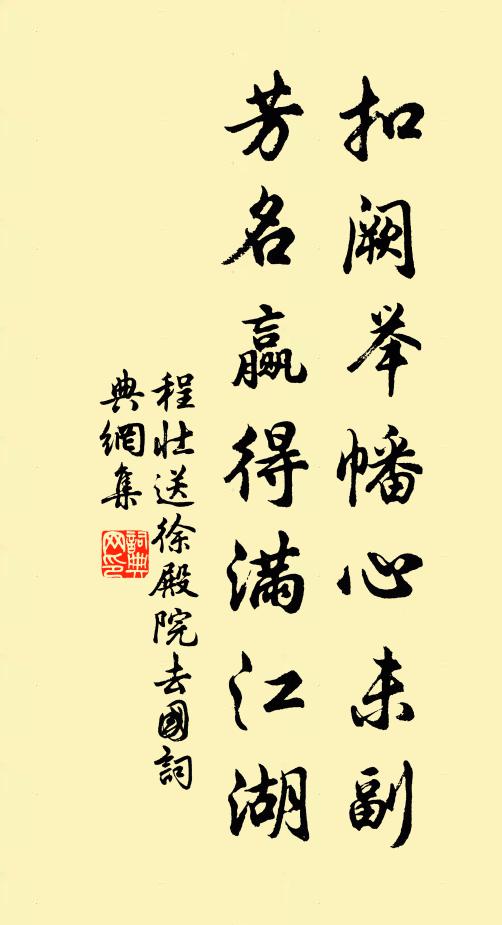 扣阙举幡心未副
芳名赢得满江湖
程壮送徐殿院去國詞
典網集
詞典网印